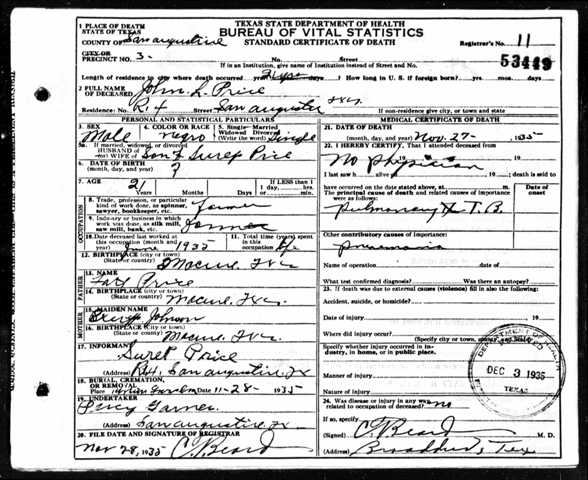 TEXAS STATE DEPARTMENT OF HEALTH
BUREAU OF VITAL STATISTICS
STANDARD CERTIFICATE OF DEATH
1 PLACE OF DEATH
STATE OF TEXAS
COUNTY OF San augustine
CITY OR
PRECINCT NO. 3
Registrar's No. 11
53449
If in an Institution, give name of Institution instead of Street and No.
Length of residence in city where death occurred 21 yrs. mos. days ? How long in U. S. if foreign born? yrs. mos. days
2 FULL NAME OF DECEASED John L. Price
Residence: No. R. 4 Street San augustine Tex
If non-residence give city, or town and state
PERSONAL AND STATISTICAL PARTICULARS
3. SEX Male
4. COLOR OR RACE negro
5. Single Married Widowed Divorced (Write the word) Single
5a. If married, widowed, or divorced
HUSBAND OF
(or) WIFE OF Son of Price
6. DATE OF BIRTH
(month, day, and year) ?
7. AGE 21 Years Months Days
If LESS than 1 day hrs. or min.
OCCUPATION
8. Trade, profession, or particular kind of work done, as spinner, sawyer, bookkeeper, etc. farmer
9. Industry or business in which work was done, as silk mill, saw mill, bank, etc. farmer
10. Date deceased last worked at this occupation (month and year) June 1935
11. Total time (years) spent in this occupation life
12. BIRTHPLACE (city or town)
(State or country) Macune, Tex
FATHER
13. NAME Price
14. BIRTHPLACE (city or town)
(State or country) Macune, Tex.
MOTHER
15. MAIDEN NAME Johnson
16. BIRTHPLACE (city or town)
(State or country) Macune, Tex.
17. INFORMANT Price
(Address) R. 4, San augustine, Tx
18. BURIAL, CREMATION, OR REMOVAL
Place Date 11-28- 1935
19. UNDERTAKER Percy Garner
(Address) San augustine Tx
20. FILE DATE AND SIGNATURE OF REGISTRAR
Nov 28, 1935 C. Beard
MEDICAL CERTIFICATE OF DEATH
21. DATE OF DEATH
(month, day, and year) Nov. 27- 1935
22. I HEREBY CERTIFY, That I attended deceased
from 19 to 19
No physician
I last saw h alive 19 ; death is said to
have occurred on the date stated above, at m.
The principal cause of death and related causes of importance were as follows:
Date of onset
Pulmonary T. B.
Other contributory causes of importance:
pneumonia
Name of operation Date of
What test confirmed diagnosis? Was there an autopsy?
23. If death was due to external causes (violence) fill in also the following:
Accident, suicide, or homicide?
Date of injury 19
Where did injury occur?
(Specify city or town, county and state)
Specify whether injury occurred in industry, in home, or in public place.
Manner of injury
Nature of injury
24. Was disease or injury in any way related to occupation of deceased? no
If so, specify
(Signed) C. Beard M. D.
(Address) Broaddus, Tex
DEPARTMENT OF HEALTH
DEC 3 1935
TEXAS